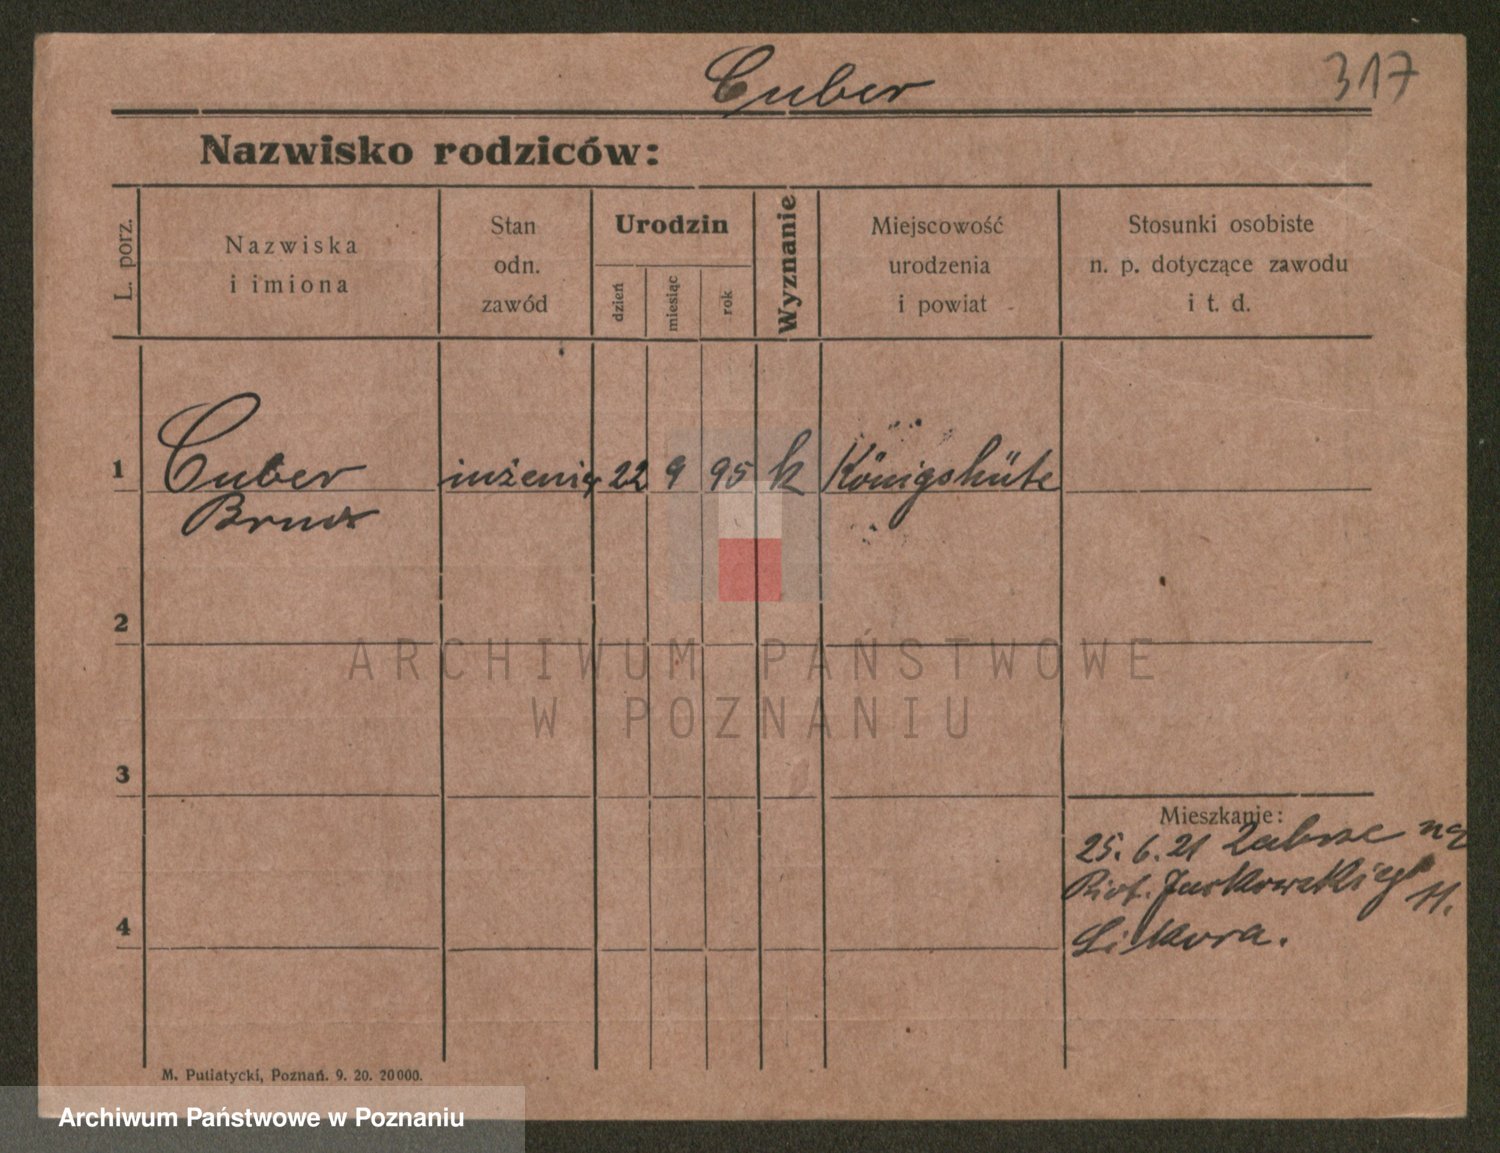 Cuber
317
Nazwisko rodziców:
L. porz.
Nazwiska
i imiona
Stan
odn.
zawód
Urodzin
dzień
miesiąc
rok
Wyznanie
Miejscowość
urodzenia
i powiat
Stosunki osobiste
n. p. dotyczące zawodu
i t. d.
1
Cuber
inżenier 22 9 95 k Königshüte
2
3
Mieszkanie:
25. 6. 21 Zabrze na
Piotr. 11.
4
Sikora.
M. Putiatycki, Poznań. 9. 20. 20000.
ARCHIWUM PAŃSTWOWE
W POZNANIU
Archiwum Państwowe w Poznaniu